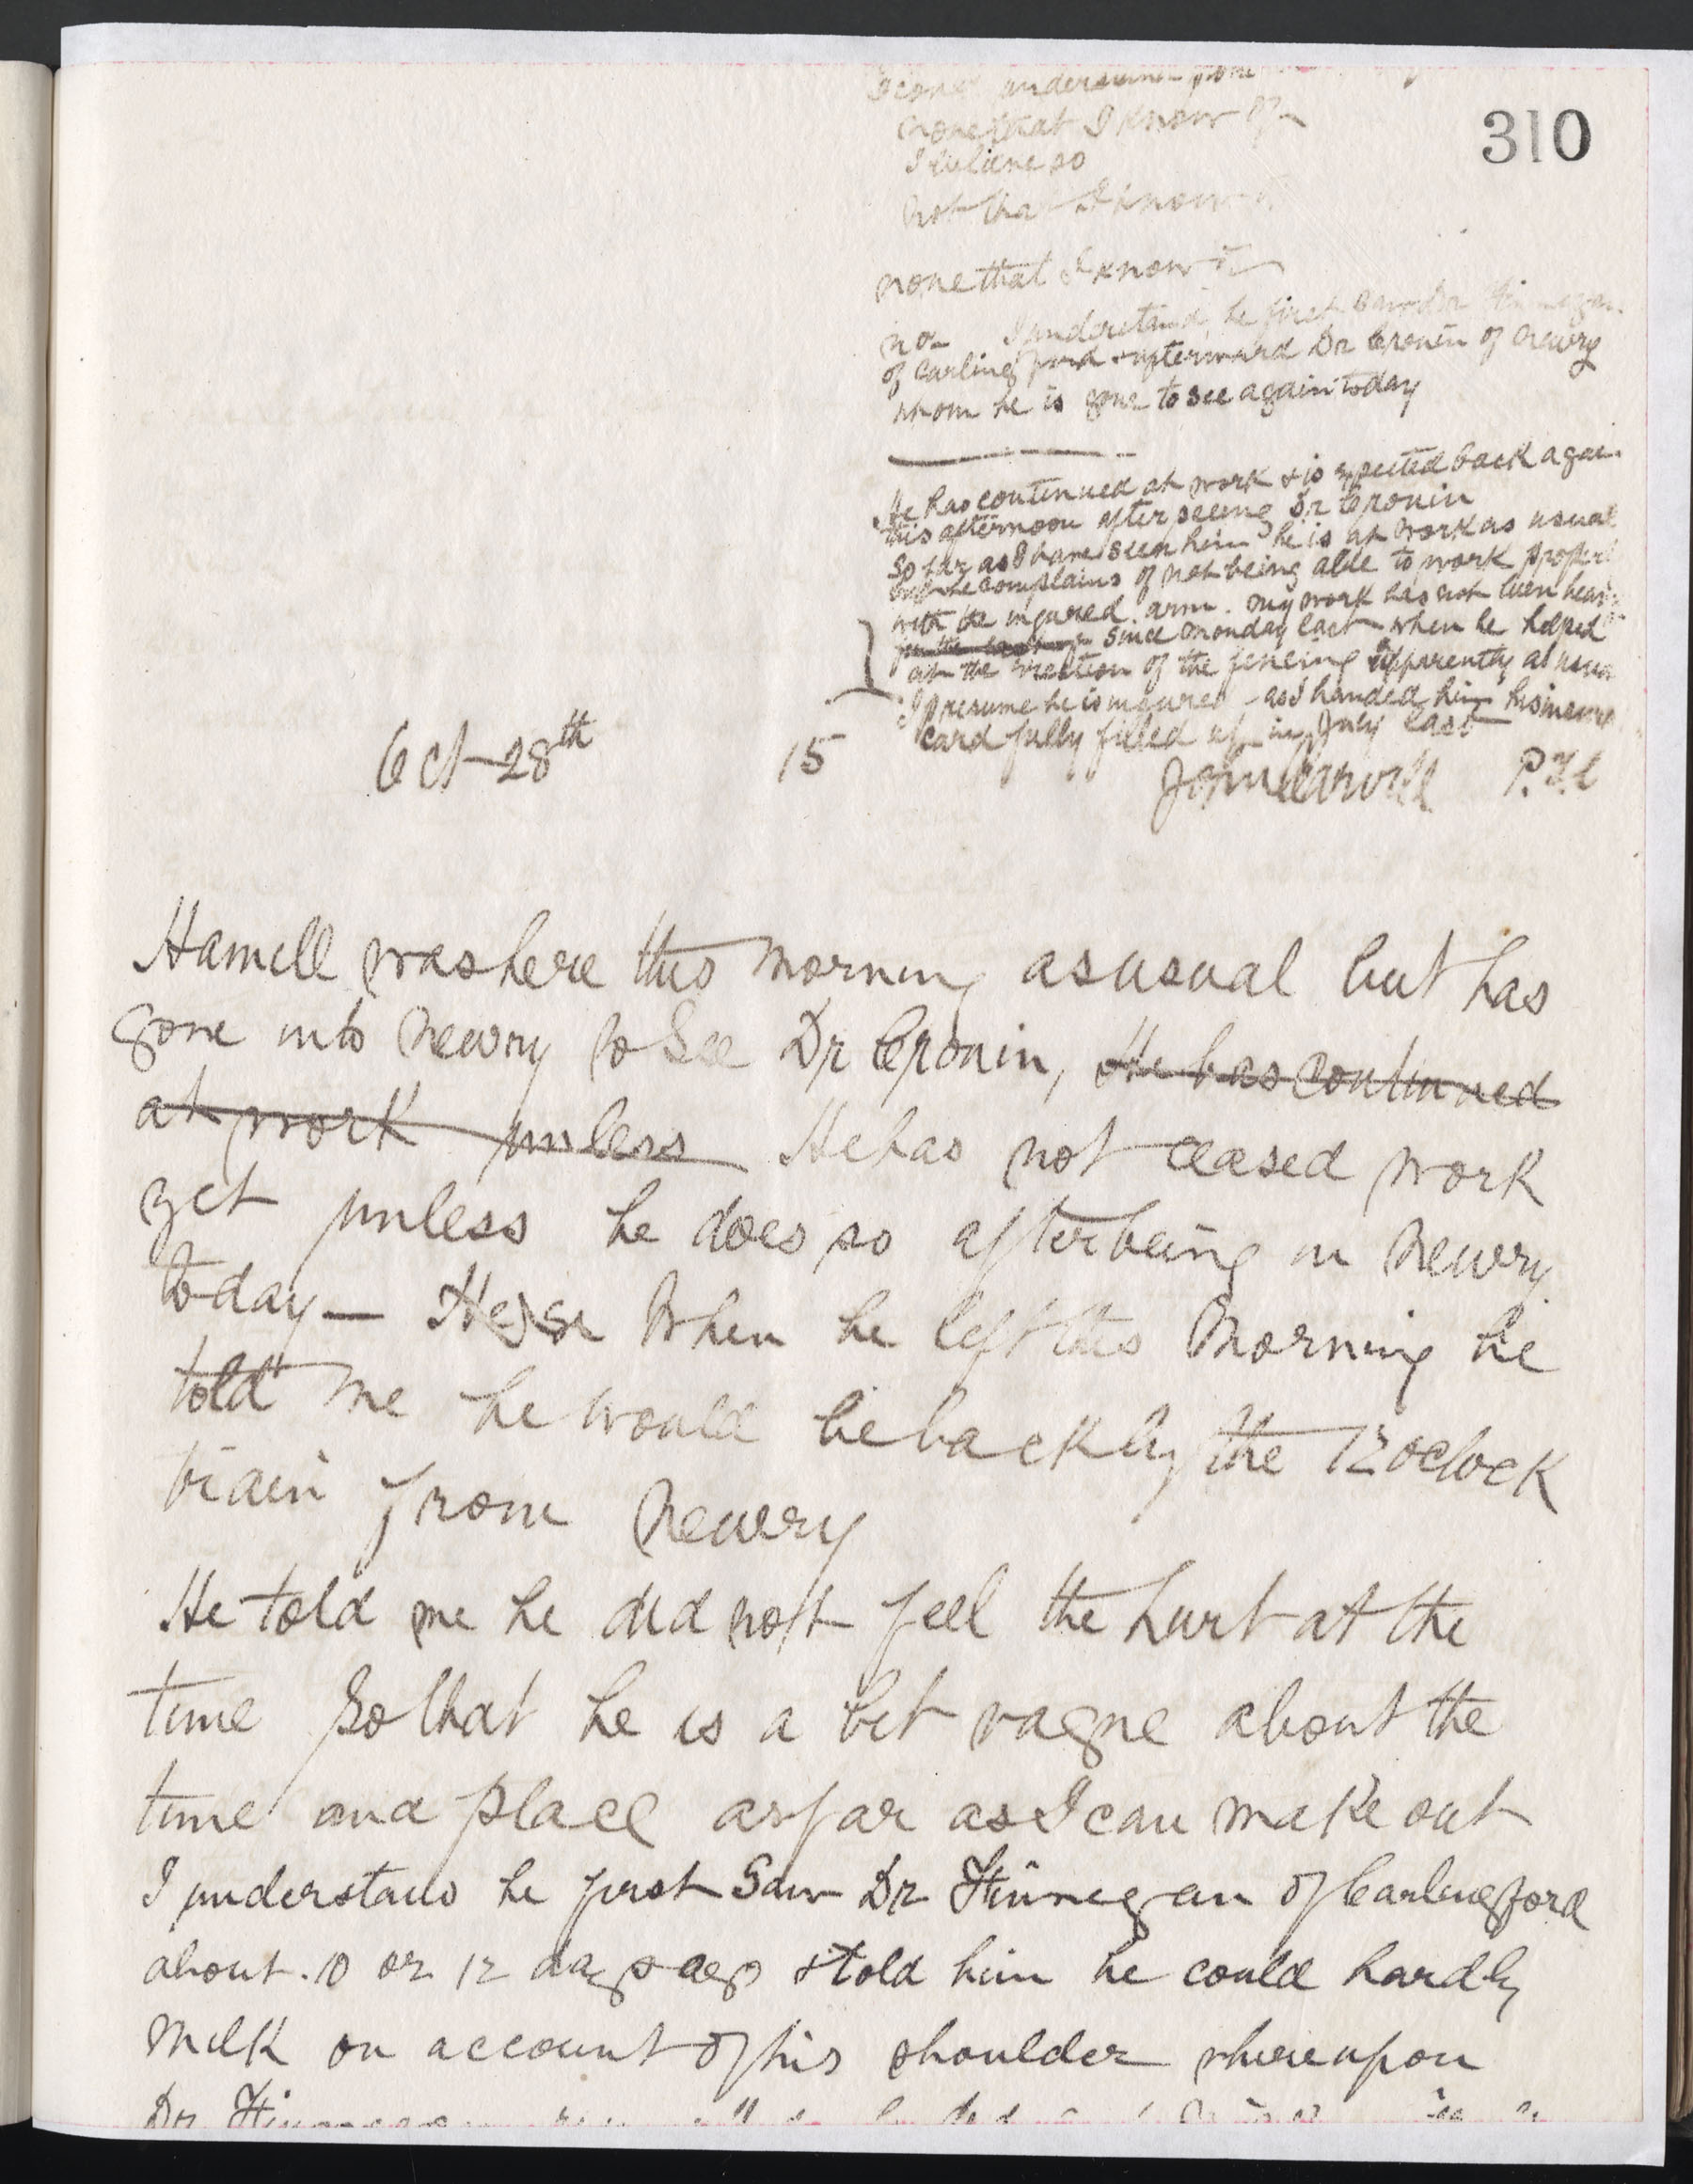 310
none that I know of
I believe so
not that I know
none that I know of
no I understand he first saw Dr Finnegan
of Carlingford & afterward Dr Cronin of Newry
whom he is gone to see again today
He has continued at work & is expected back again
this afternoon after seeing Dr Cronin
So far as I have seen him he is at work as usual
but he complains of not being able to work properl
with the injured arm. my work has not been heavy
since monday last when he helped
at the erection of the fencing apparently as usual
I presume he is insured as I handed him his insur
card fully filled up in July last
Oct 28th 15
John P.T.O
Hamill was here this morning as usual but has
gone into Newry to See Dr Cronin, He has continued
at work unless He has not ceased work
yet unless he does so after being in Newry
today— He When he left this Morning he
told me he would be back by the 12 oclock
train from Newry
He told me he did not feel the hurt at the
time so that he is a bit vague about the
time and place as far as I can make out
I understand he first Saw Dr Finnegan of Carlingford
about 10 or 12 days ago & told him he could hardly
Milk on account of his shoulder whereupon
Dr